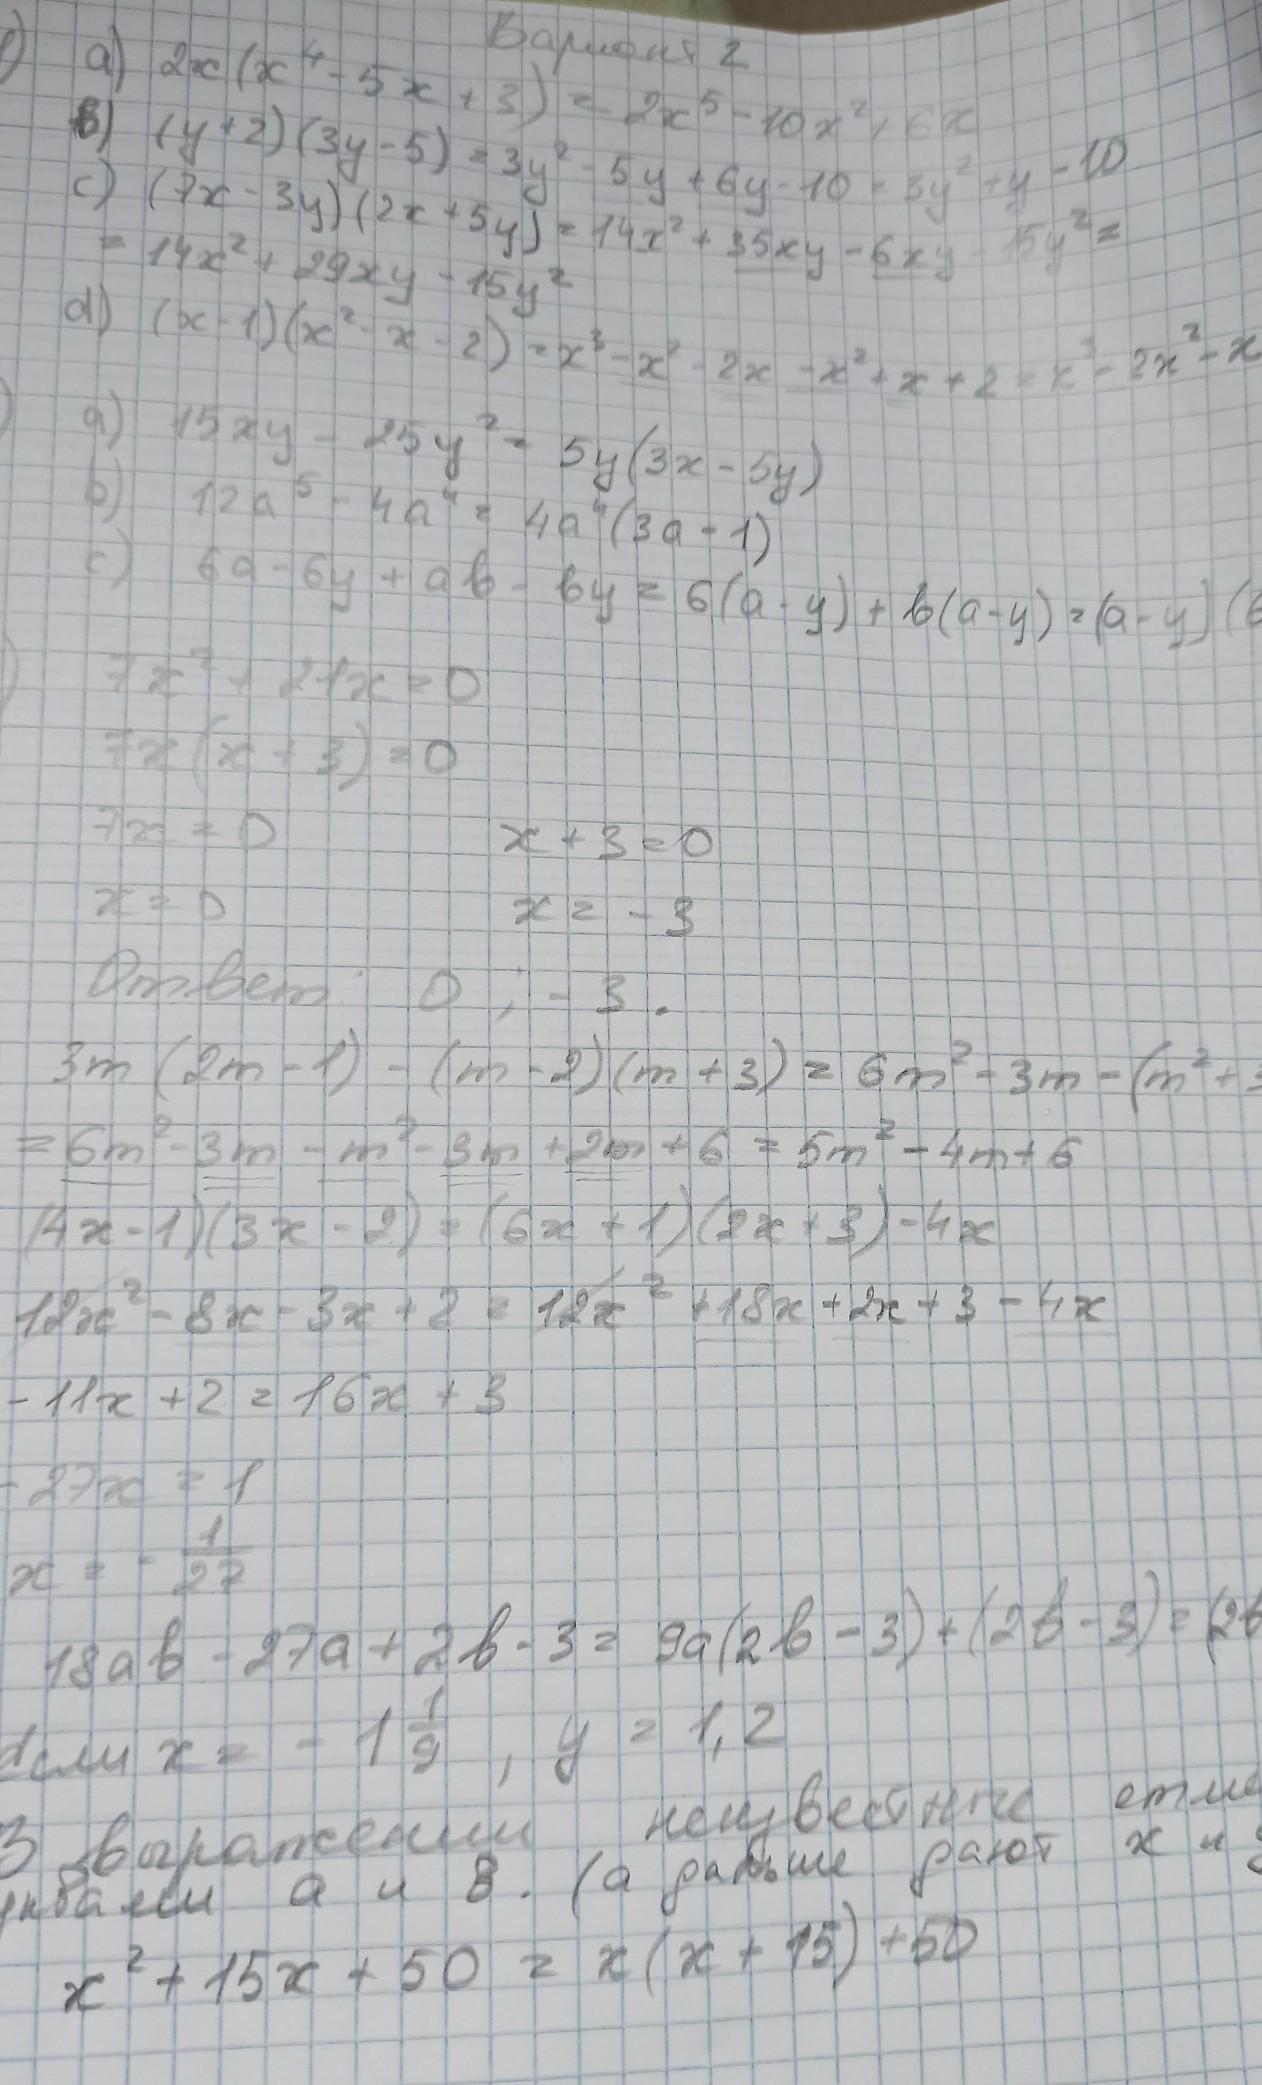 Вариант 2
) a) 2x(x⁴ - 5x + 3) = 2x⁵ - 10x² + 6x
b) (y+2)(3y-5) = 3y² - 5y + 6y - 10 = 3y² + y - 10
c) (7x - 3y)(2x + 5y) = 14x² + 35xy - 6xy - 15y² =
= 14x² + 29xy - 15y²
d) (x-1)(x² - x - 2) = x³ - x² - 2x - x² + x + 2 = x³ - 2x² - x
) a) 15xy - 25y² = 5y(3x - 5y)
b) 12a⁵ - 4a⁴ = 4a⁴(3a - 1)
c) 6a - 6y + ab - by = 6(a-y) + b(a-y) = (a-y)(6
) 7x² + 21x = 0
7x(x + 3) = 0
7x = 0 x + 3 = 0
x = 0 x = - 3
Ответ: 0 ; - 3 .
3m(2m - 1) - (m - 2)(m + 3) = 6m² - 3m - (m² + 3
= 6m² - 3m - m² - 3m + 2m + 6 = 5m² - 4m + 6
(4x - 1)(3x - 2) = (6x + 1)(2x + 3) - 4x
12x² - 8x - 3x + 2 = 12x² + 18x + 2x + 3 - 4x
- 11x + 2 = 16x + 3
- 27x = 1
x = - 1/27
18ab - 27a + 2b - 3 = 9a(2b - 3) + (2b - 3) = (2b
если x = - 1 1/9 , y = 1,2
В выражении неизвестные
a и в. (а дальше дают x и
x² + 15x + 50 = x(x + 15) + 50